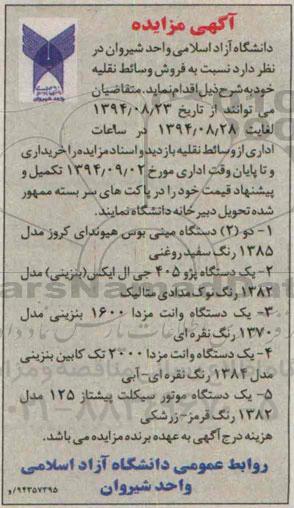 آگهی مزایده
دانشگاه آزاد اسلامی
واحد شیروان
دانشگاه آزاد اسلامی واحد شیروان در
نظر دارد نسبت به فروش وسائط نقلیه
خود به شرح ذیل اقدام نماید. متقاضیان
می توانند از تاریخ ۱۳۹۴/۰۸/۲۳
لغایت ۱۳۹۴/۰۸/۲۸ در ساعات
اداری از وسائط نقلیه بازدید و اسناد مزایده را خریداری
و تا پایان وقت اداری مورخ ۱۳۹۴/۰۹/۰۲ تکمیل و
پیشنهاد قیمت خود را در پاکت های سر بسته ممهور
شده تحویل دبیرخانه دانشگاه نمایند.
۱- دو (۲) دستگاه مینی بوس هیوندای کروز مدل
۱۳۸۵ رنگ سفید روغنی
۲- یک دستگاه پژو ۴۰۵ جی ال ایکس(بنزینی) مدل
۱۳۸۲ رنگ نوک مدادی متالیک
۳- یک دستگاه وانت مزدا ۱۶۰۰ بنزینی مدل
۱۳۷۰ رنگ نقره ای
۴- یک دستگاه وانت مزدا ۲۰۰۰ تک کابین بنزینی
مدل ۱۳۸۴ رنگ نقره ای-آبی
۵- یک دستگاه موتور سیکلت پیشتاز ۱۲۵ مدل
۱۳۸۲ رنگ قرمز-زرشکی
هزینه درج آگهی به عهده برنده مزایده می باشد.
روابط عمومی دانشگاه آزاد اسلامی
واحد شیروان
۹۴۳۵۷۳۹۵/و